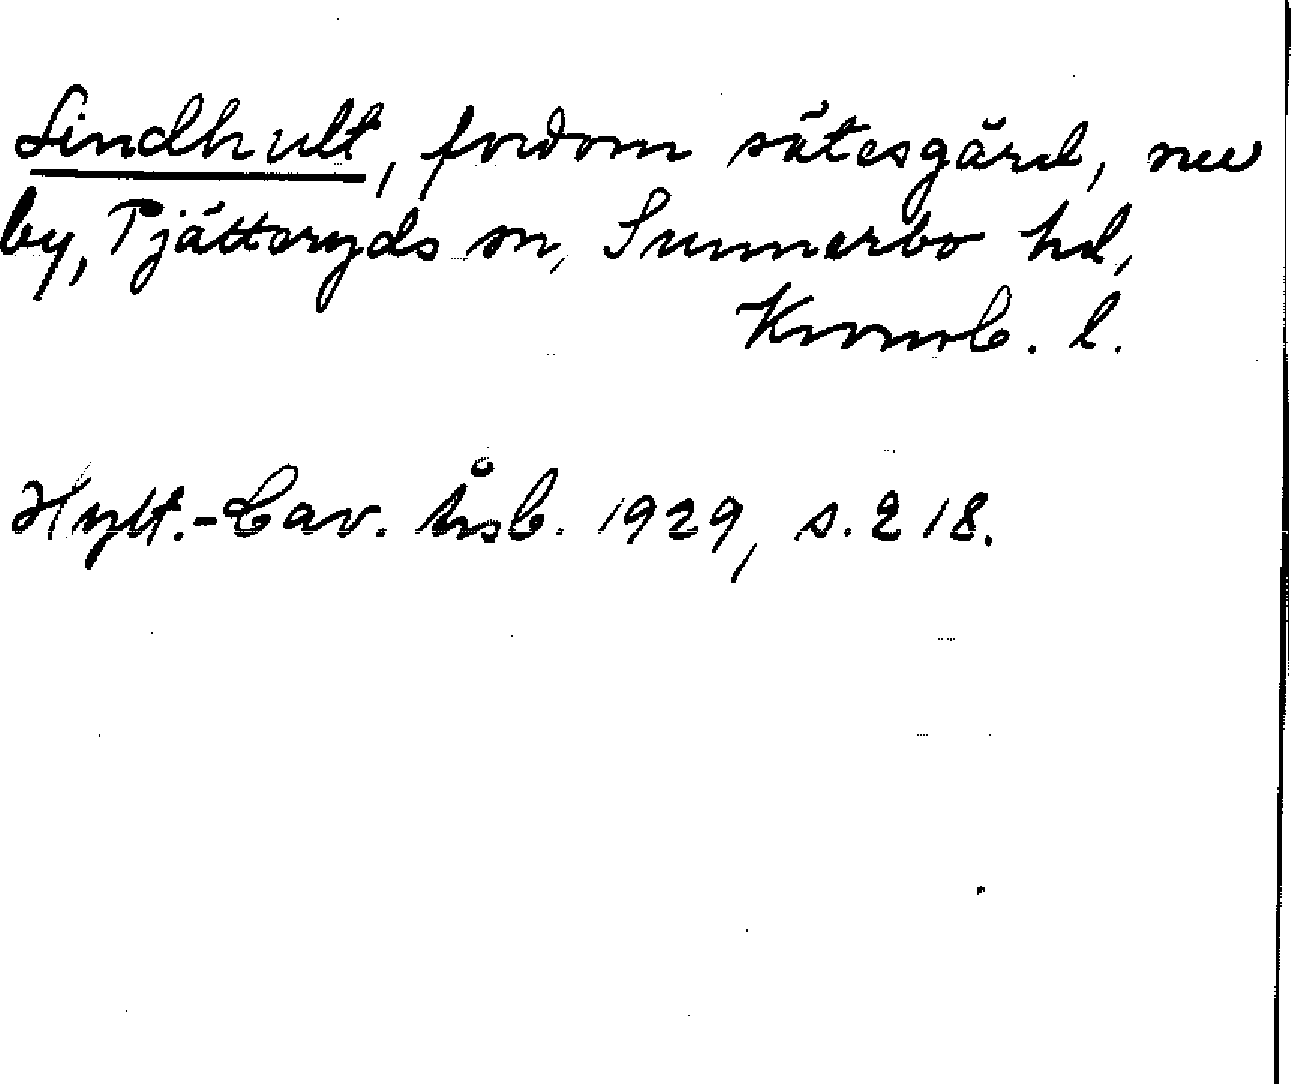 Lindhult, fordom sätesgård, nu
by, Pjätteryds sn, Sunnerbo hd,
Kronob. l.
Hylt.-Cav. årsb. 1929, s. 218.